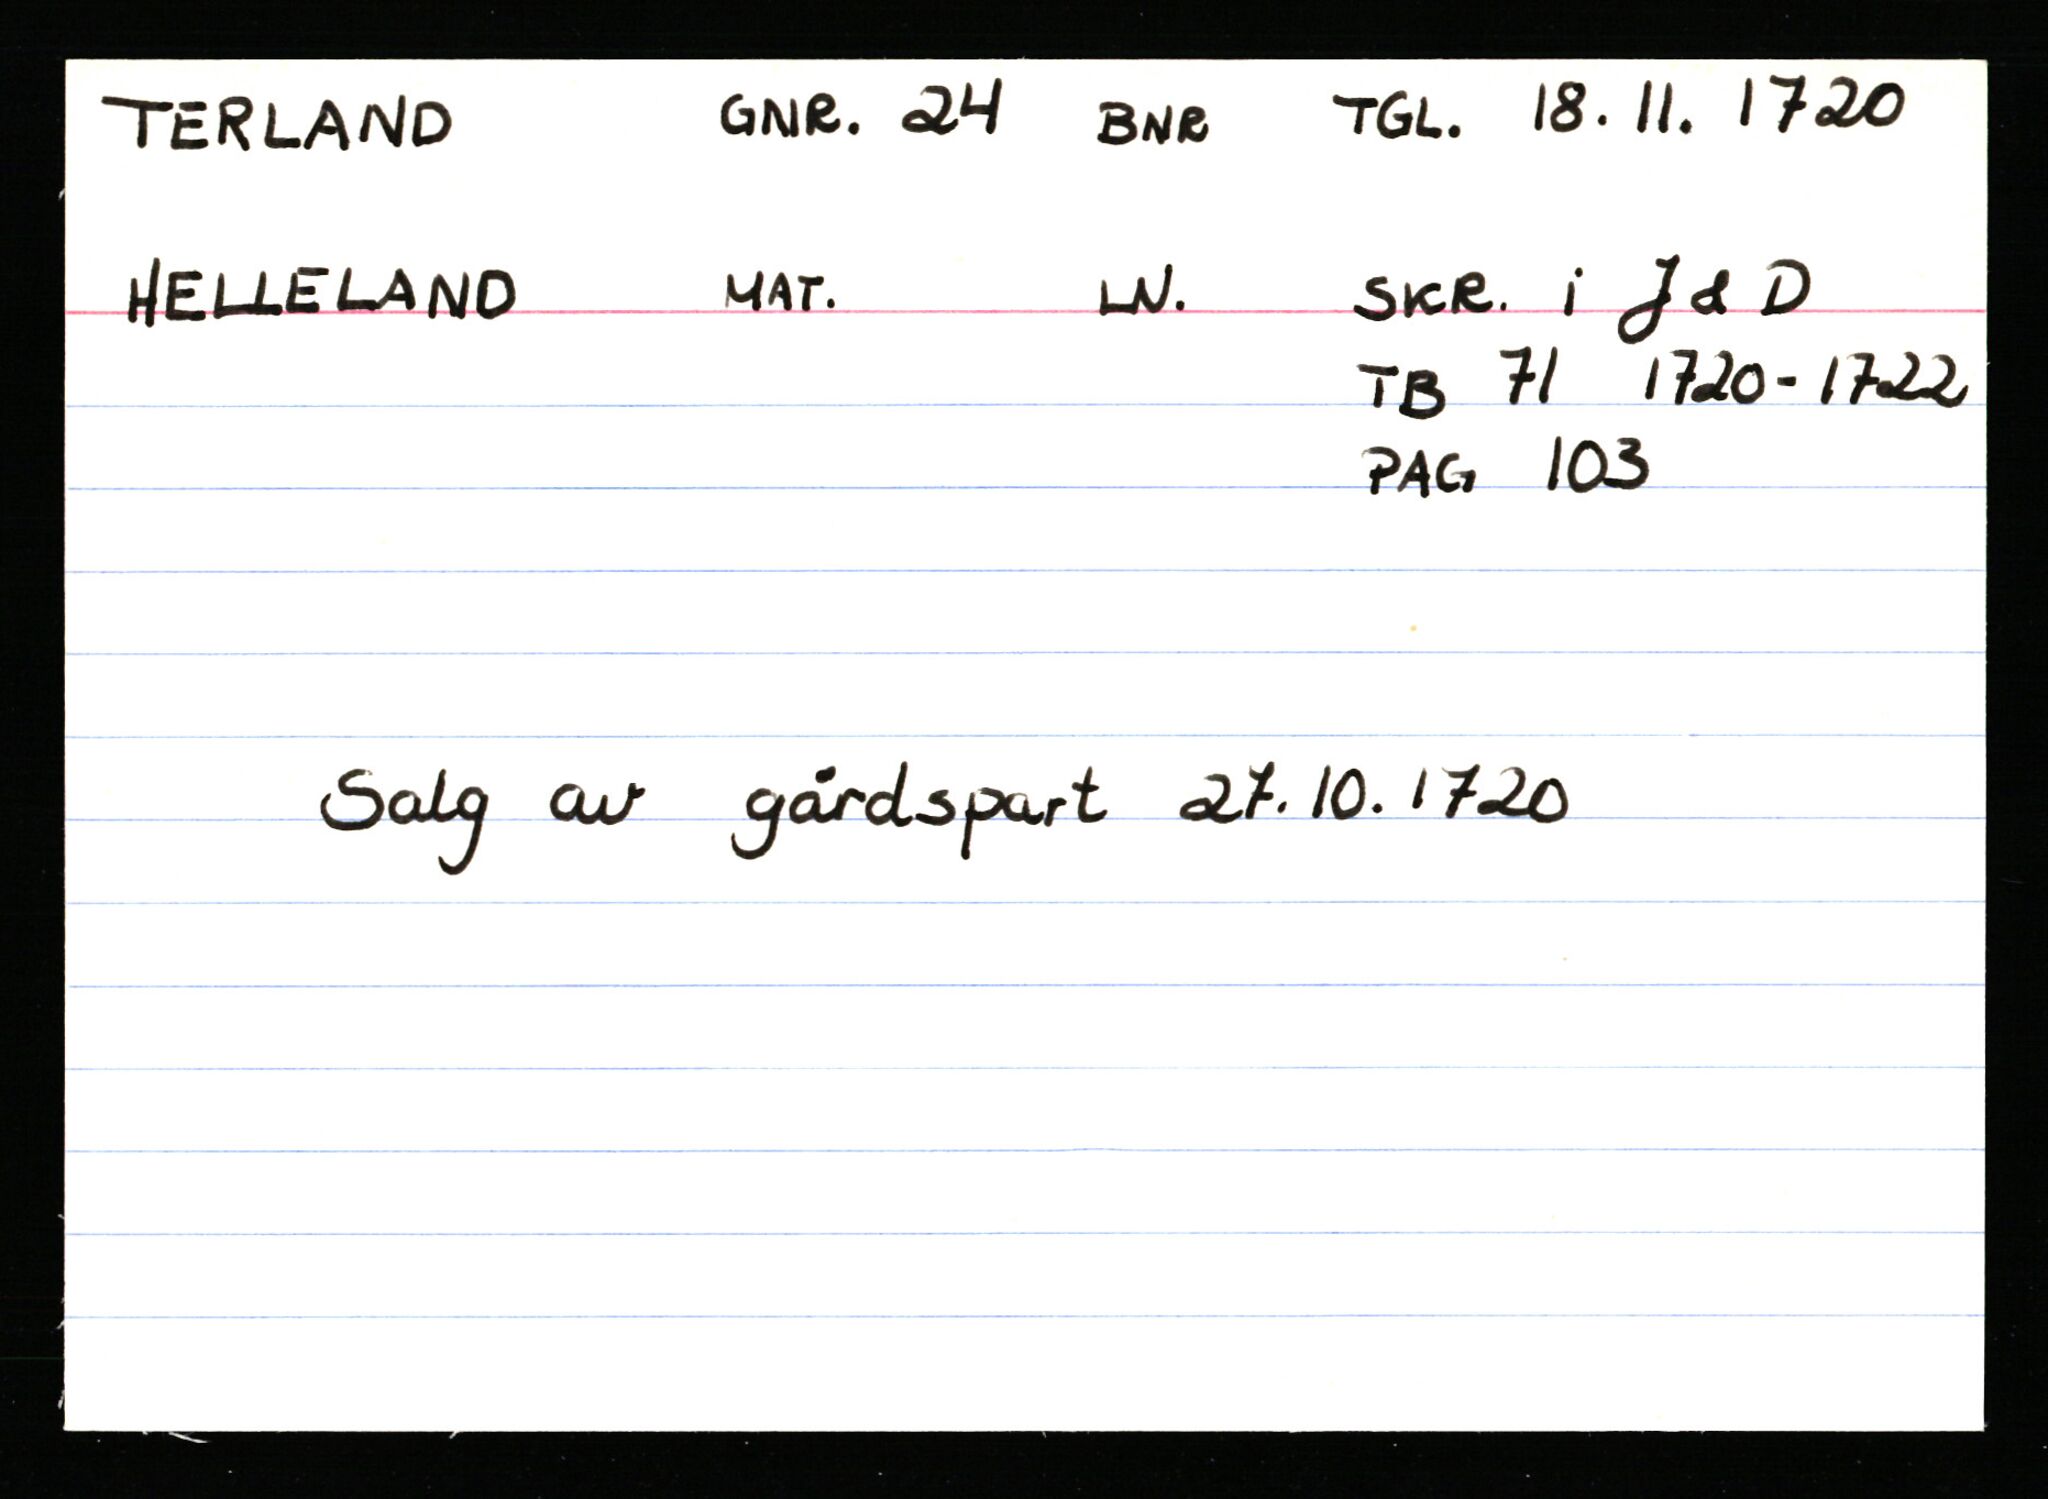 TERLAND GNR. 24 BNR TGL. 18.11.1720
HELLELAND MAT. LN. SKR. i J & D
TB 71 1720-1722
PAG 103
Salg av gårdspart 27.10.1720